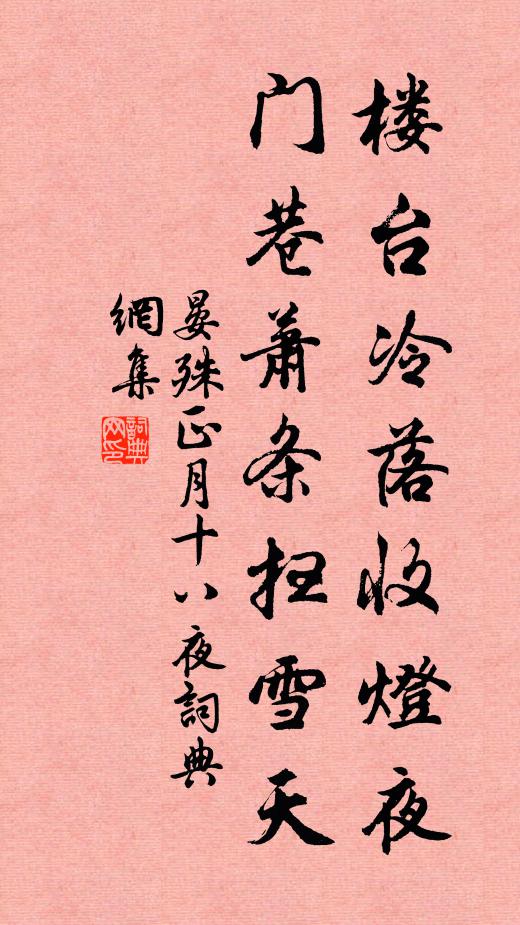 楼台冷落收燈夜
门巷萧条扫雪天
晏殊正月十八夜詞典
網集
詞典
网印